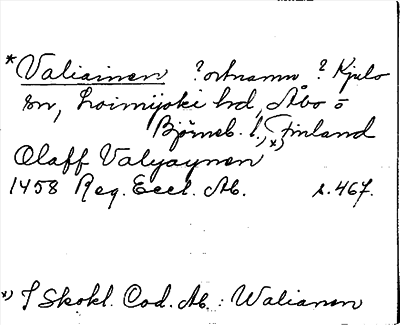 *Valiainen ?ortnamn ? Kjulo
sn, Loimijoki hd, Åbo o
Björneb. l.,*) Finland
Olaff Valyaynen
1458 Reg. Eccl. Ab. s. 467.
*) I Skokl. Cod. Ab.: Walianen